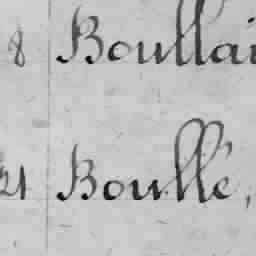 8 Boullai
21 Boullé,